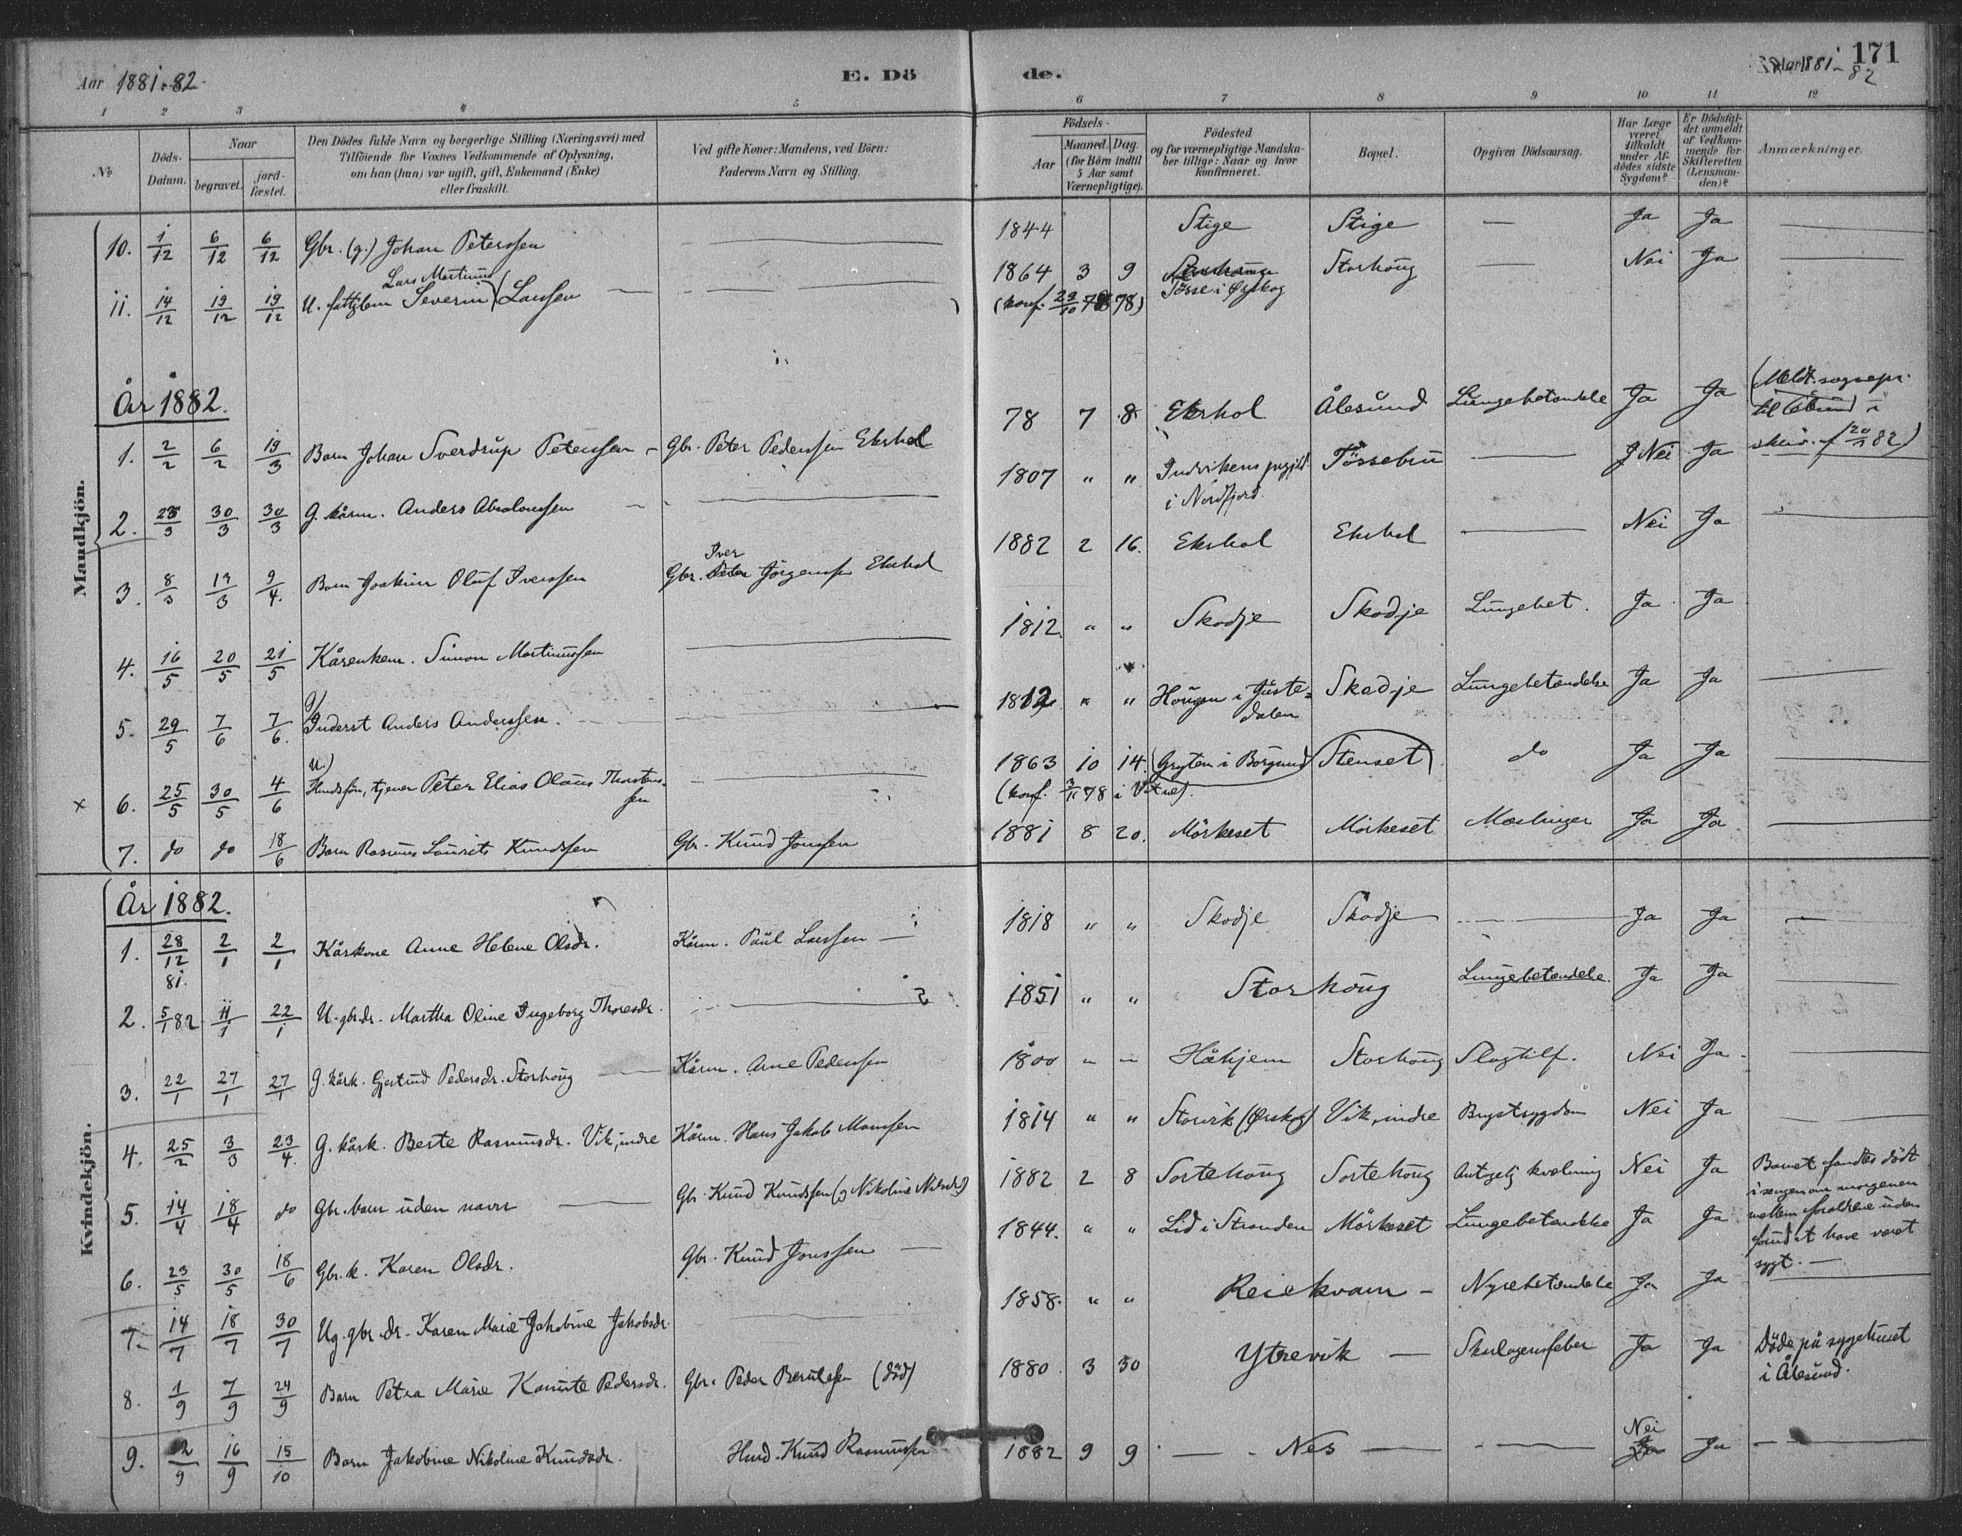 Aar 1881-82. E. Dö de. Aar 1881-82 171
1 2 3 4 5 6 7 8 9 10 11 12
No
Döds-Datum.
Naar
begravet.
jordfæstet.
Den Dödes fulde Navn og borgerlige Stilling (Næringsvei) med
Tilföiende for Voxnes Vedkommende af Oplysning,
om han (hun) var ugift, gift, Enkemand (Enke)
eller fraskilt.
Ved gifte Koner: Mandens, ved Börn:
Faderens Navn og Stilling.
Födsels-
Aar
Maaned. Dag.
(for Börn indtil
5 Aar samt
Værnepligtige).
Födested
og for værnepligtige Mandska-
ber tillige: Naar og hvor
konfirmeret.
Bopæl.
Opgiven Dödsaarsag.
Har Læge
været
tilkaldt
under Af-
dödes sidste
Sygdom?
Er Dödsfal-
det anmeldt
af Vedkom-
mende for
Skifteretten
(Lensman-
den)?
Anmærkninger.
Mandkjön.
10. 1/12 6/12 6/12 Gbr. (g.) Johan Peterssen — 1844 Stige Stige — Ja Ja —
Lars Martinus
11. 14/12 19/12 19/12 U. fattiglem Severin Larssen — 1864 3 9 Tösse i Ørskog Storhoug — Nei Ja —
(konf. 29/10 78)
År 1882.
1. 2/2 6/2 19/3 Barn Johan Sverdrup Peterssen — Gbr. Peter Pederssen Ekrhol 78 7 8 Ekrhol Ålesund Lungebetændelse Ja Ja (Meldt sognepr.
til i
skriv. af 20/2 82)
2. 25/3 30/3 30/3 G. kårm. Anders Absalonssen — 1807 " " Indvikens prgjld
i Nordfjord. Tössebru — Nei Ja
3. 8/3 19/3 9/4 Barn Joakim Oluf Iverssen Gbr. Iver Jörgenssen Ekrhol 1882 2 16. Ekrhol Ekrhol — Nei Ja —
4. 16/5 20/5 21/5 Kårenkem. Simon Martinussen — 1812 " " Skodje Skodje Lungebet. Ja Ja
5. 29/5 7/6 7/6 g) Inderst Anders Anderssen. — 1812 " " Hougen i Juste-
dalen Skodje Lungebetændelse Ja Ja —
x 6. 25/5 30/5 4/6 U.) Husdsfön, tjener Peter Elias Olaus Thorstens-
sen — 1863 10 14. (Gryten i Borgund) Stenset) do Ja Ja —
(konf. 3/11 78 i Vatne).
7. do do 18/6 Barn Rasmus Laurits Knudssen Gbr. Knud Jonssen 1881 8 20. Mörkeset Mörkeset Mæslinger Ja Ja —
Kvindekjön.
År 1882.
1. 28/12 81. 2/1 2/1 Kårkone Anne Helene Olsdr. Kårm. Paul Larssen — 1818 " " Skodje Skodje — Ja Ja —
2. 5/1 82 11/1 22/1 U. gbrdr. Martha Oline Ingeborg Thoresdr. — 1851 " " Storhoug Lungebetændelse. Ja Ja
3. 22/1 27/1 27/1 G. kårk. Gjertrud Pedersdr. Storhoug — Kårm. Arne Pederssen 1800 " " Håhjem Storhoug Slagtilf. Nei Ja —
4. 25/2 3/3 23/4 G. kårk. Berte Rasmusdr. Vik, indre Kårm. Hans Jakob Monssen 1814 " " Storvik (Ørskog) Vik, indre Brystsygdom Nei Ja —
5. 14/4 18/4 do Gbr. barn uden navn — Gbr. Knud Knudssen (og Nikoline Nilsdr.) 1882 2 8 Sortehoug Sortehoug Antagelig kvælning Nei Ja Barnet fandtes dödt
i sengen om morgenen
mellem forældrene uden
at have været
sygt. —
6. 23/5 30/5 18/6 Gbr. k. Karen Olsdr. Gbr. Knud Jonssen — 1844. " " Lid i Stranden Mörkeset Lungebetændelse Ja Ja
7. 14/7 18/7 30/7 Ug. gbr. dr. Karen Marie Jakobine Jakobsdr. — 1858. " " Reiekvam — Nyrebetændelse Ja Ja —
8. 1/9 7/9 24/9 Barn Petra Marie Kanutte Pedersdr. Gbr. Peder Berntssen (död) 1880 3 30 Ytrevik — Skarlagensfeber Ja Ja Döde på sygehuset
i Ålesund.
9. 12/9 16/9 15/10 Barn Jakobine Nikoline Knudsdr. Husd. Knud Rasmussen 1882 9 9 — Nes — — Nei Ja —